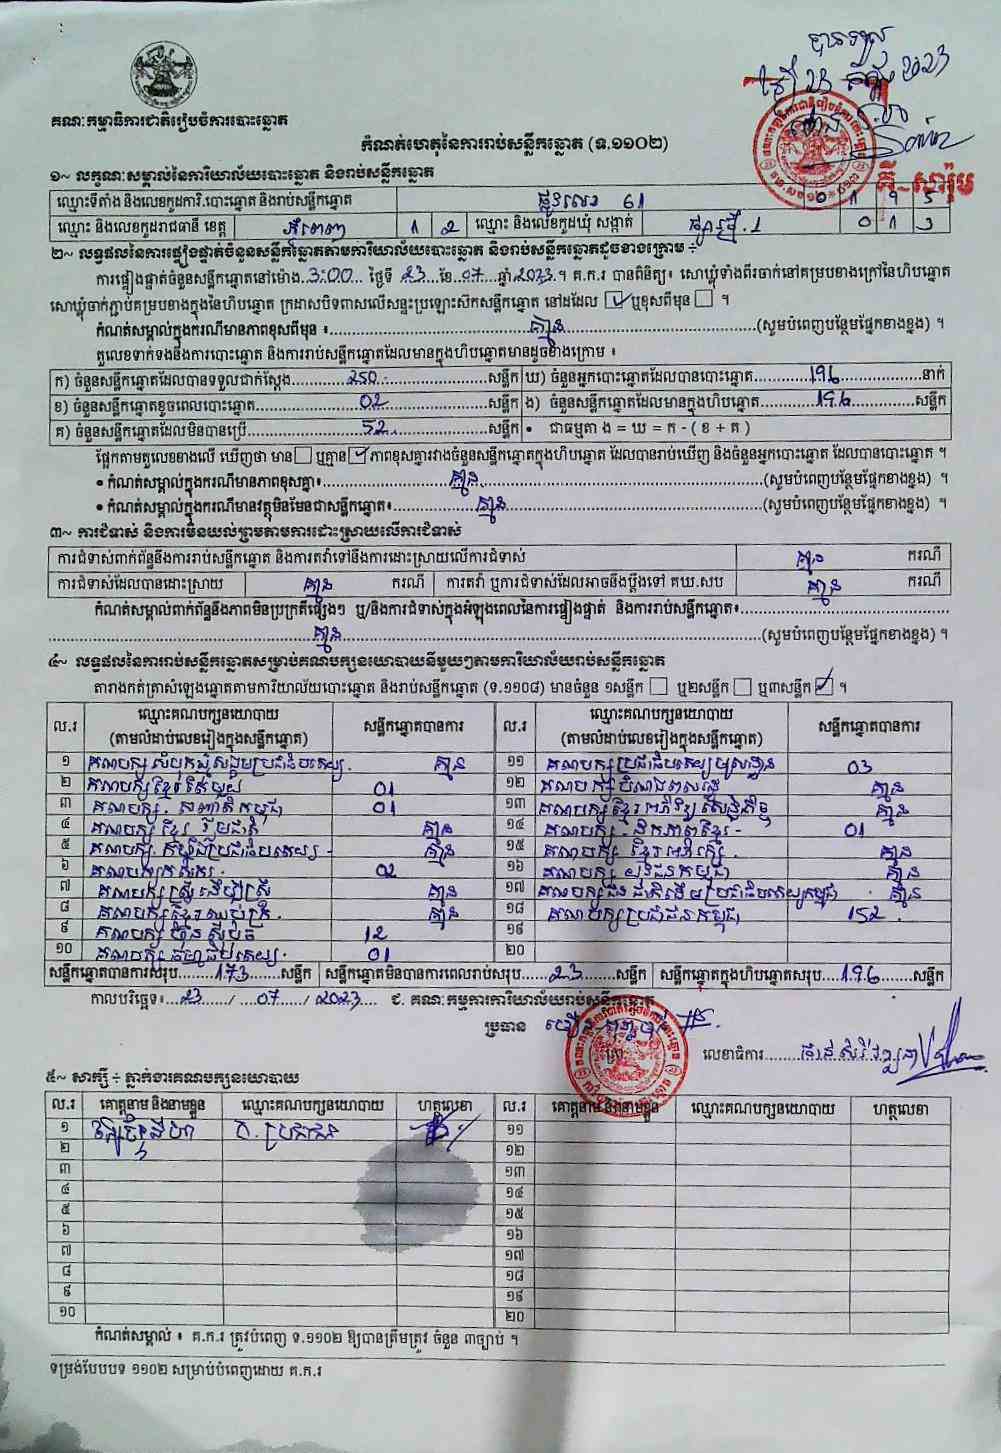 បានទទួល
ថ្ងៃ 23 កក្កដា 2023
គណៈកម្មាធិការជាតិរៀបចំការបោះឆ្នោត
គី-សារ៉ុម
កំណត់ហេតុនៃការរាប់សន្លឹកឆ្នោត (ទ.១១០២)
១~ លក្ខណៈសម្គាល់នៃការិយាល័យបោះឆ្នោត និងរាប់សន្លឹកឆ្នោត
ឈ្មោះទីតាំង និងលេខកូដការិ.បោះឆ្នោត និងរាប់សន្លឹកឆ្នោត ផ្លូវលេខ 61 0 1 9 5
ឈ្មោះ និងលេខកូដរាជធានី ខេត្ត ភ្នំពេញ 1 2 ឈ្មោះ និងលេខកូដឃុំ សង្កាត់ ផ្សារថ្មី.1 0 1 3
២~ លទ្ធផលនៃការផ្ទៀងផ្ទាត់ចំនួនសន្លឹកឆ្នោតតាមការិយាល័យបោះឆ្នោត និងរាប់សន្លឹកឆ្នោតដូចខាងក្រោម ÷
ការផ្ទៀងផ្ទាត់ចំនួនសន្លឹកឆ្នោតនៅម៉ោង 3:00 ថ្ងៃទី 23 ខែ 07 ឆ្នាំ 2023។ គ.ក.រ បានពិនិត្យ៖ សោឃ្លុំទាំងពីរចាក់នៅគម្របខាងក្រៅនៃហិបឆ្នោត
សោឃ្លុំចាក់ភ្ជាប់គម្របខាងក្នុងនៃហិបឆ្នោត ក្រដាសបិទពាសលើសន្ទះប្រឡោះសឹកសន្លឹកឆ្នោត នៅដដែល ☑ ឬខុសពីមុន ☐ ។
កំណត់សម្គាល់ក្នុងករណីមានភាពខុសពីមុន ៖ គ្មាន (សូមបំពេញបន្ថែមផ្នែកខាងខ្នង) ។
តួលេខទាក់ទងនឹងការបោះឆ្នោត និងការរាប់សន្លឹកឆ្នោតដែលមានក្នុងហិបឆ្នោតមានដូចខាងក្រោម ៖
ក) ចំនួនសន្លឹកឆ្នោតដែលបានទទួលជាក់ស្តែង 250 សន្លឹក ឃ) ចំនួនអ្នកបោះឆ្នោតដែលបានបោះឆ្នោត 196 នាក់
ខ) ចំនួនសន្លឹកឆ្នោតខូចពេលបោះឆ្នោត 02 សន្លឹក ង) ចំនួនសន្លឹកឆ្នោតដែលមានក្នុងហិបឆ្នោត 196 សន្លឹក
គ) ចំនួនសន្លឹកឆ្នោតដែលមិនបានប្រើ 52 សន្លឹក • ជាធម្មតា ង = ឃ = ក - ( ខ + គ )
ផ្អែកតាមតួលេខខាងលើ ឃើញថា មាន ☐ ឬគ្មាន ☑ ភាពខុសគ្នារវាងចំនួនសន្លឹកឆ្នោតក្នុងហិបឆ្នោត ដែលបានរាប់ឃើញ និងចំនួនអ្នកបោះឆ្នោត ដែលបានបោះឆ្នោត ។
• កំណត់សម្គាល់ក្នុងករណីមានភាពខុសគ្នា៖ គ្មាន (សូមបំពេញបន្ថែមផ្នែកខាងខ្នង) ។
• កំណត់សម្គាល់ក្នុងករណីមានវត្ថុមិនមែនជាសន្លឹកឆ្នោត៖ គ្មាន (សូមបំពេញបន្ថែមផ្នែកខាងខ្នង) ។
៣~ ការជំទាស់ និងការមិនយល់ព្រមតាមការដោះស្រាយលើការជំទាស់
ការជំទាស់ពាក់ព័ន្ធនឹងការរាប់សន្លឹកឆ្នោត និងការតវ៉ាទៅនឹងការដោះស្រាយលើការជំទាស់ គ្មាន ករណី
ការជំទាស់ដែលបានដោះស្រាយ គ្មាន ករណី ការតវ៉ា ឬការជំទាស់ដែលអាចនឹងប្តឹងទៅ គឃ.សប គ្មាន ករណី
កំណត់សម្គាល់ពាក់ព័ន្ធនឹងភាពមិនប្រក្រតីផ្សេងៗ ឬ/និងការជំទាស់ក្នុងអំឡុងពេលនៃការផ្ទៀងផ្ទាត់ និងការរាប់សន្លឹកឆ្នោត៖
គ្មាន (សូមបំពេញបន្ថែមផ្នែកខាងខ្នង) ។
៤~ លទ្ធផលនៃការរាប់សន្លឹកឆ្នោតសម្រាប់គណបក្សនយោបាយនីមួយៗតាមការិយាល័យរាប់សន្លឹកឆ្នោត
តារាងកត់ត្រាសំឡេងឆ្នោតតាមការិយាល័យបោះឆ្នោត និងរាប់សន្លឹកឆ្នោត (ទ.១១០៨) មានចំនួន ១សន្លឹក ☐ ឬ២សន្លឹក ☐ ឬ៣សន្លឹក ☑ ។
ល.រ ឈ្មោះគណបក្សនយោបាយ (តាមលំដាប់លេខរៀងក្នុងសន្លឹកឆ្នោត) សន្លឹកឆ្នោតបានការ ល.រ ឈ្មោះគណបក្សនយោបាយ (តាមលំដាប់លេខរៀងក្នុងសន្លឹកឆ្នោត) សន្លឹកឆ្នោតបានការ
១ គណបក្ស សំបុកឃ្មុំសង្គមប្រជាធិបតេយ្យ គ្មាន ១១ គណបក្សប្រជាធិបតេយ្យមូលដ្ឋាន 03
២ គណបក្សខ្មែរតែមួយ 01 ១២ គណបក្ស បំណងពលរដ្ឋ គ្មាន
៣ គណបក្ស សញ្ជាតិកម្ពុជា 01 ១៣ គណបក្សខ្មែរអភិវឌ្ឍសេដ្ឋកិច្ច គ្មាន
៤ គណបក្សខ្មែរ រួបរួមជាតិ គ្មាន ១៤ គណបក្ស ឯកភាពខ្មែរ 01
៥ គណបក្ស កម្លាំងប្រជាធិបតេយ្យ គ្មាន ១៥ គណបក្ស ខ្មែរអភិរក្ស គ្មាន
៦ គណបក្សកសិករ 02 ១៦ គណបក្ស យុវជនកម្ពុជា គ្មាន
៧ គណបក្សស្ត្រីដើម្បីស្ត្រី គ្មាន ១៧ គណបក្សជនជាតិដើមប្រជាធិបតេយ្យកម្ពុជា គ្មាន
៨ គណបក្សខ្មែរឈប់ក្រ គ្មាន ១៨ គណបក្សប្រជាជនកម្ពុជា 152
៩ គណបក្ស ហ៊្វុនស៊ិនប៉ិច 12 ១៩
១០ គណបក្ស ធម្មាធិបតេយ្យ 01 ២០
សន្លឹកឆ្នោតបានការសរុប 173 សន្លឹក សន្លឹកឆ្នោតមិនបានការពេលរាប់សរុប 23 សន្លឹក សន្លឹកឆ្នោតក្នុងហិបឆ្នោតសរុប 196 សន្លឹក
កាលបរិច្ឆេទ៖ 23 / 07 / 2023 ជ. គណៈកម្មការការិយាល័យរាប់សន្លឹកឆ្នោត
ប្រធាន
លេខាធិការ
៥~ សាក្សី ÷ ភ្នាក់ងារគណបក្សនយោបាយ
ល.រ គោត្តនាម និងនាមខ្លួន ឈ្មោះគណបក្សនយោបាយ ហត្ថលេខា ល.រ គោត្តនាម និងនាមខ្លួន ឈ្មោះគណបក្សនយោបាយ ហត្ថលេខា
១ គ. ប្រជាជន ១១
២ ១២
៣ ១៣
៤ ១៤
៥ ១៥
៦ ១៦
៧ ១៧
៨ ១៨
៩ ១៩
១០ ២០
កំណត់សម្គាល់ ៖ គ.ក.រ ត្រូវបំពេញ ទ.១១០២ ឱ្យបានត្រឹមត្រូវ ចំនួន ៣ច្បាប់ ។
ទម្រង់បែបបទ ១១០២ សម្រាប់បំពេញដោយ គ.ក.រ